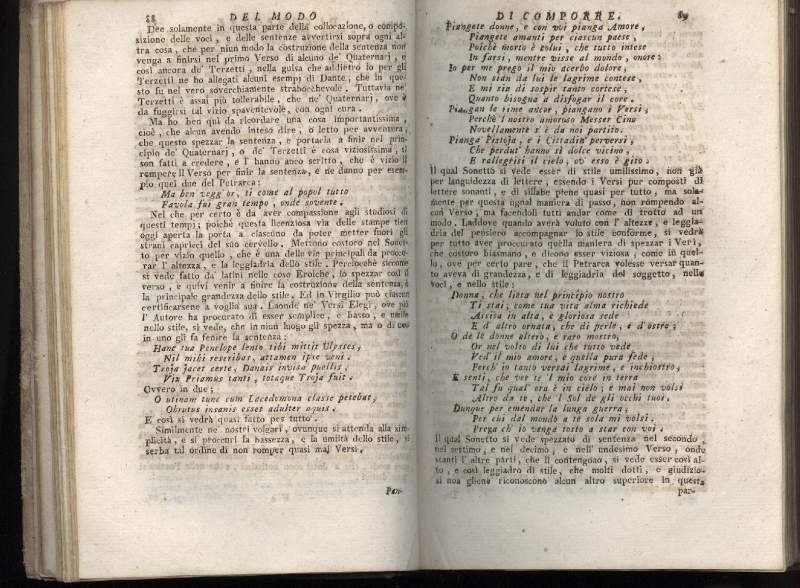 88 DEL MODO
Dee solamente in questa parte della collocazione, o compo-
sizione delle voci, e delle sentenze avvertirsi sopra ogni al-
tra cosa, che per niun modo la costruzione della sentenza non
venga a finirsi nel primo Verso di alcuno de' Quaternarj, e
così ancora de' Terzetti, nella guisa che addietro io per gli
Terzetti ne ho allegati alcuni esempj di Dante; che in que-
sto fu nel vero soverchiamente strabocchevole. Tuttavia ne'
Terzetti è assai più tollerabile, che ne' Quaternarj, ove è
da fuggirsi tal vizio spaventevole, con ogni cura.
Ma ho ben quì da ricordare una cosa importantissima,
cioè, che alcun avendo inteso dire, o letto per avventura,
che questo spezzar la sentenza, e portarla a finir nel prin-
cipio de' Quaternarj, o de' Terzetti è cosa viziosissima, si
son fatti a credere, e l' hanno anco scritto, che è vizio il
rompere il Verso per finir la sentenza, e ne danno per esem-
pio quei due del Petrarca:
Ma ben vegg'or, sì come al popol tutto
Favola fui gran tempo, onde sovente.
Nel che per certo è da aver compassione agli studiosi di
questi tempi; poichè questa licenziosa via delle stampe tien
oggi aperta la porta a ciascuno da poter metter fuori gli
strani capricci del suo cervello. Mettono costoro nel Sonet-
to per vizio quello, che è una delle vie principali da procu-
rar l' altezza, e la leggiadria dello stile. Perciocchè siccome
si vede fatto da' latini nelle cose Eroiche, lo spezzar così il
verso, e quivi venir a finire la costruzione della sentenza, è
la principale grandezza dello stile. Ed in Virgilio può ciascun
certificarsene a voglia sua. Laonde ne' Versi Elegi, ove poi
l' Autore ha procurato di esser semplice, e basso, e umile
nello stile, si vede, che in niun luogo gli spezza, ma o di uno
in uno gli fa fenire la sentenza:
Hanc tua Penelope lento tibi mittit Ulysses,
Nil mihi rescribas, attamen ipse veni.
Troja jacet certe, Danais invisa puellis,
Vix Priamus tanti, totaque Troja fuit.
Ovvero in due;
O utinam tunc cum Lacedemona classe petebat,
Obrutus insanis esset adulter aquis.
E così si vedrà quasi fatto per tutto.
Similmente ne' nostri volgari, ovunque si attenda alla sim-
plicità, e si procuri la bassezza, e la umiltà dello stile, si
serba tal ordine di non romper quasi mai Versi.
Pan-
DI COMPORRE. 89
Piangete donne, e con voi pianga Amore,
Piangete amanti per ciascun paese,
Poichè morto è colui, che tutto intese
In farvi, mentre visse al mondo, onore:
Io per me prego il mio acerbo dolore,
Non sian da lui le lagrime contese,
E mi sia di sospir tanto cortese,
Quanto bisogna a disfogar il core.
Piangan le rime ancor, piangano i Versi,
Perchè 'l nostro amoroso Messer Cino
Novellamente s' è da noi partito.
Pianga Pistoja, e i Cittadin perversi,
Che perdut' hanno sì dolce vicino,
E rallegrisi il cielo, ov' esso è gito.
Il qual Sonetto si vede esser di stile umilissimo, non già
per languidezza di lettere, essendo i Versi pur composti di
lettere sonanti, e di sillabe piene quasi per tutto, ma sola-
mente per questa ugual maniera di passo, non rompendo al-
cun Verso, ma facendoli tutti andar come di trotto ad un
modo. Laddove quando averà voluto con l' altezza, e leggia-
dria del pensiero accompagnar lo stile conforme, si vedrà
per tutto aver proccurato quella maniera di spezzar i Versi,
che costoro biasmano, e dicono esser viziosa; come in quel-
lo, ove per certo pare, che il Petrarca volesse versar quan-
to aveva di grandezza, e di leggiadria del soggetto, nelle
voci, e nello stile:
Donna, che lieta nel principio nostro
Ti stai, come tua vita alma richiede
Assisa in alta, e gloriosa sede
E d' altro ornata, che di perle, e d' ostro;
O de le donne altero, e raro mostro,
Or nel volto di lui che tutto vede
Ved' il mio amore, e quella pura fede,
Perch' io tanto versai lagrime, e inchiostro,
E senti, che ver te 'l mio core in terra
Tal fu qual' ora è in cielo; e mai non volsi
Altro da te, che 'l Sol de gli occhi tuoi.
Dunque per emendar la lunga guerra,
Per cui dal mondo a te sola mi volsi,
Prega ch' io venga tosto a star con voi.
Il qual Sonetto si vede spezzato di sentenza nel secondo,
nel settimo, e nel decimo, e nell' undecimo Verso, onde
stanti l' altre parti, che il contengono, si vede esser così al-
to, e così leggiadro di stile, che molti dotti, e giudizio-
si non gliene riconoscono alcun altro superiore in questa
par-